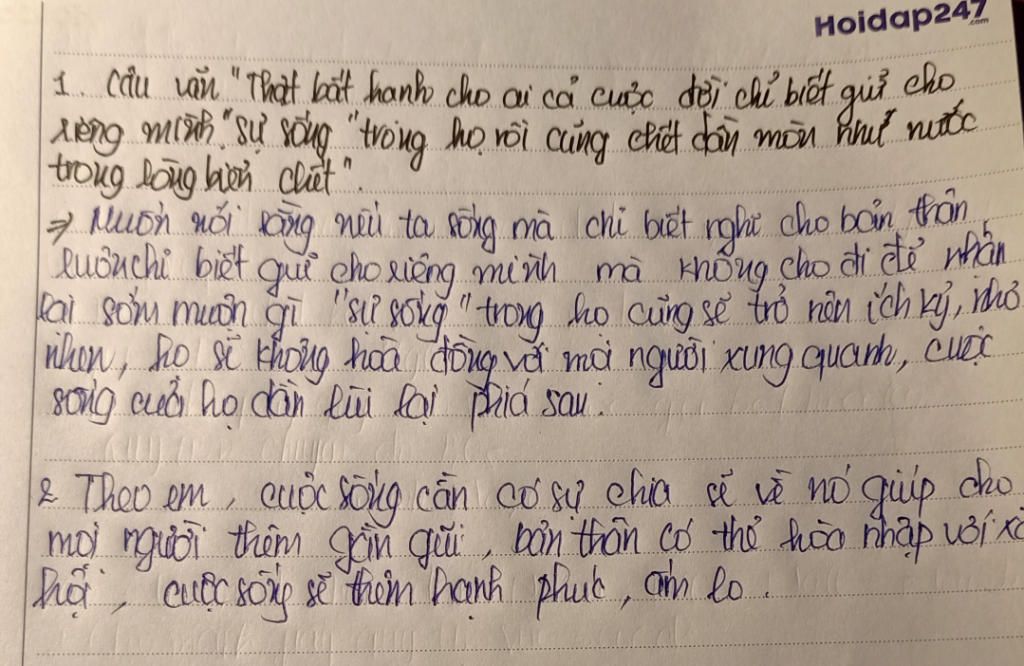 Hoidap247
.com
1. Câu văn "Thật bất hạnh cho ai cả cuộc đời chỉ biết giữ cho
riêng mình. "sự sống" trong họ rồi cũng chết dần mòn như nước
trong lòng biển chết".
=> Muốn nói rằng nếu ta sống mà chỉ biết nghĩ cho bản thân,
luôn chỉ biết giữ cho riêng mình mà không cho đi để nhận
lại sớm muộn gì "sự sống" trong họ cũng sẽ trở nên ích kỷ, nhỏ
nhen, họ sẽ không hoà đồng với mọi người xung quanh, cuộc
sống của họ dần lùi lại phía sau.
2 Theo em, cuộc sống cần có sự chia sẻ vì nó giúp cho
mọi người thêm gần gũi, bản thân có thể hòa nhập với xã
hội, cuộc sống sẽ thêm hạnh phúc, ấm lo.